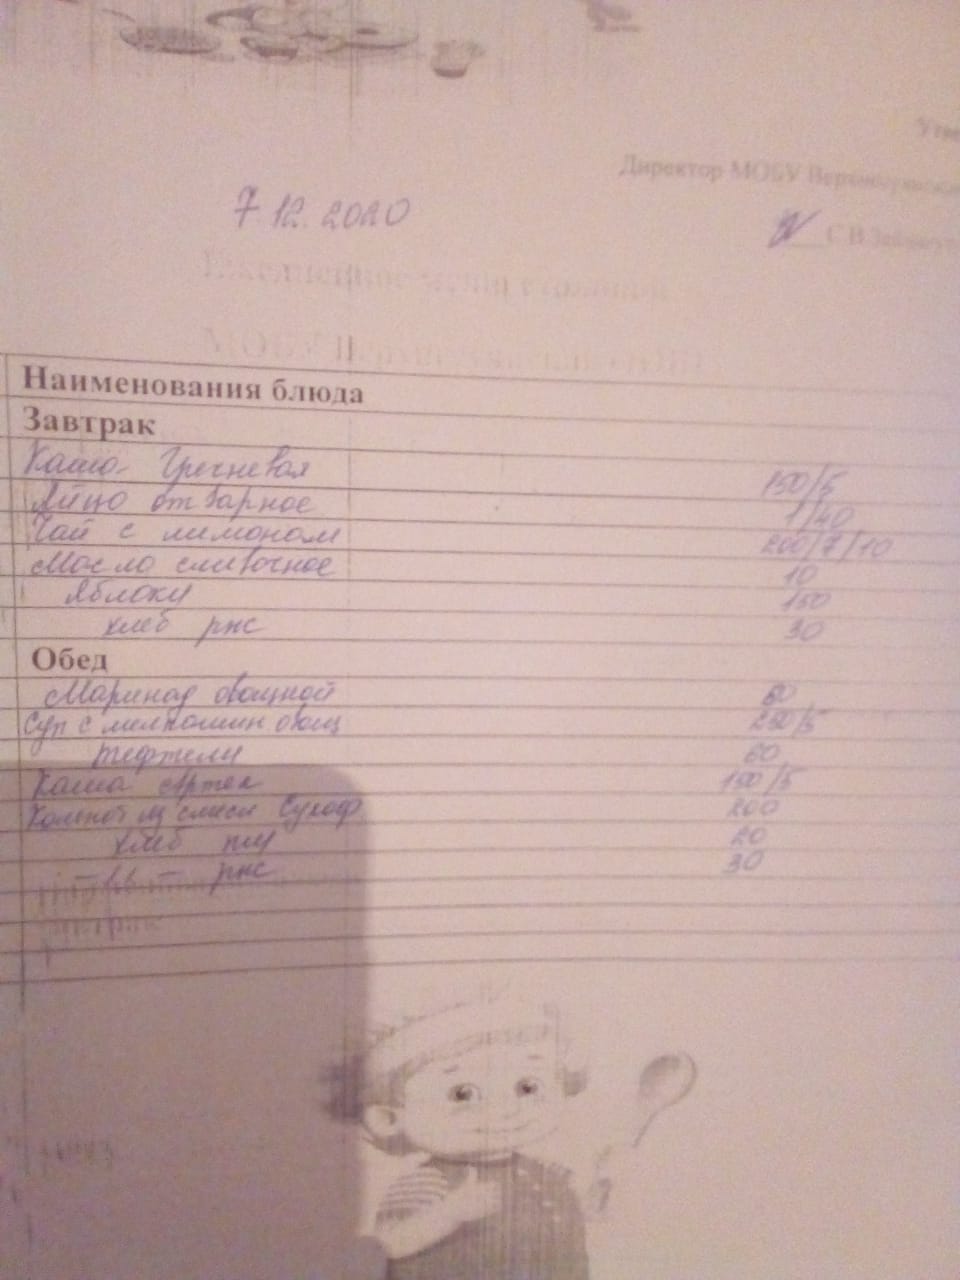 Директор МОБУ
7.12.2020
С В
Ежедневное меню столовой
МОБУ
Наименования блюда
Завтрак
Каша Гречневая 150/5
Яйцо отварное 1/40
Чай с лимоном 200/7/10
Масло сливочное 10
Яблоки 150
хлеб рж 30
Обед
Маринад овощной 60
Суп с мелкошин овощ 250/5
тефтели 60
Каша Артек 150/5
Компот из смеси Сухоф 200
хлеб пш 20
рж 30